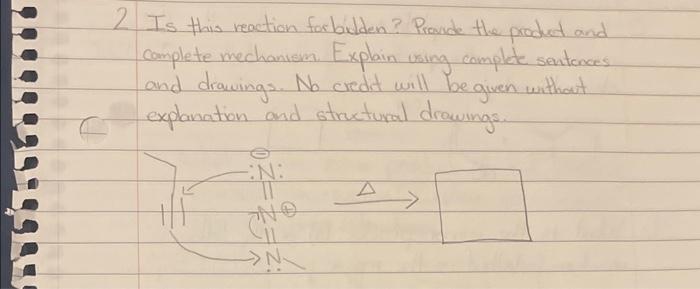 2 Is this reaction forbidden? Provide the product and
complete mechanism. Explain using complete sentences
and drawings. No credit will be given without
explanation and structural drawings.
⊖
:N:
Δ
N⊕
N